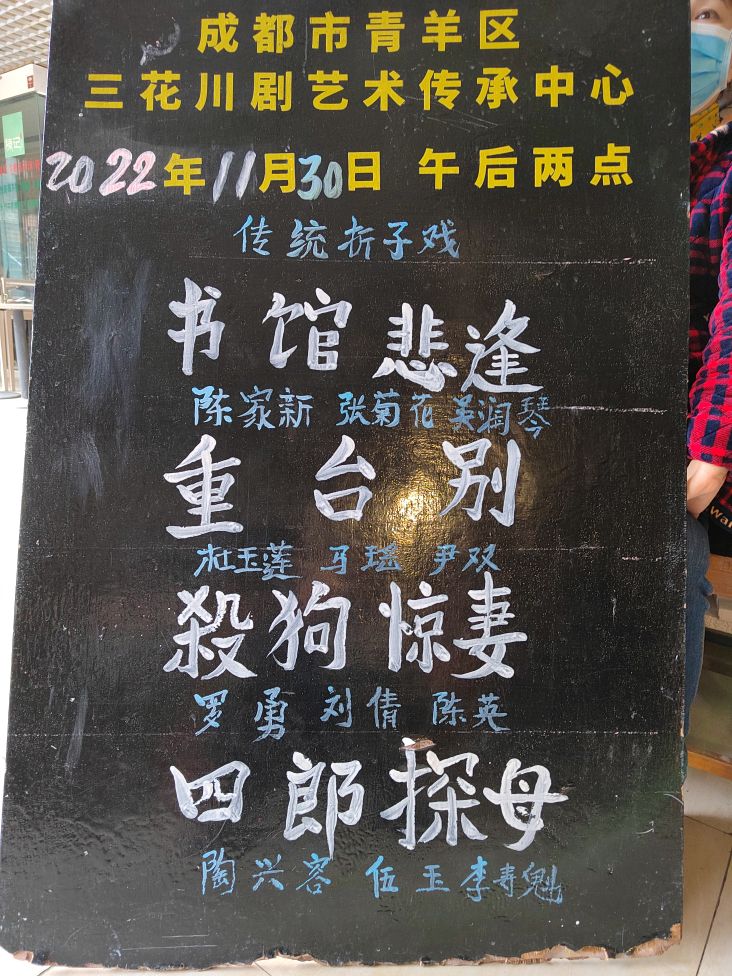 成都市青羊区
三花川剧艺术传承中心
2022年11月30日 午后两点
传统折子戏
书馆悲逢
陈家新 张菊花 吴润琴
重台别
杜玉莲 马瑶 尹双
殺狗惊妻
罗勇 刘倩 陈英
四郎探母
陶兴容 伍玉 李寿魁
War